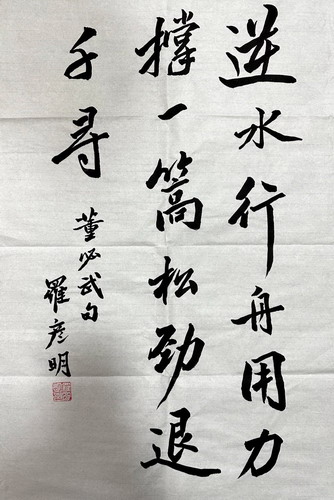 逆水行舟用力
撑一篙松劲退
千寻
董必武句
羅彦明